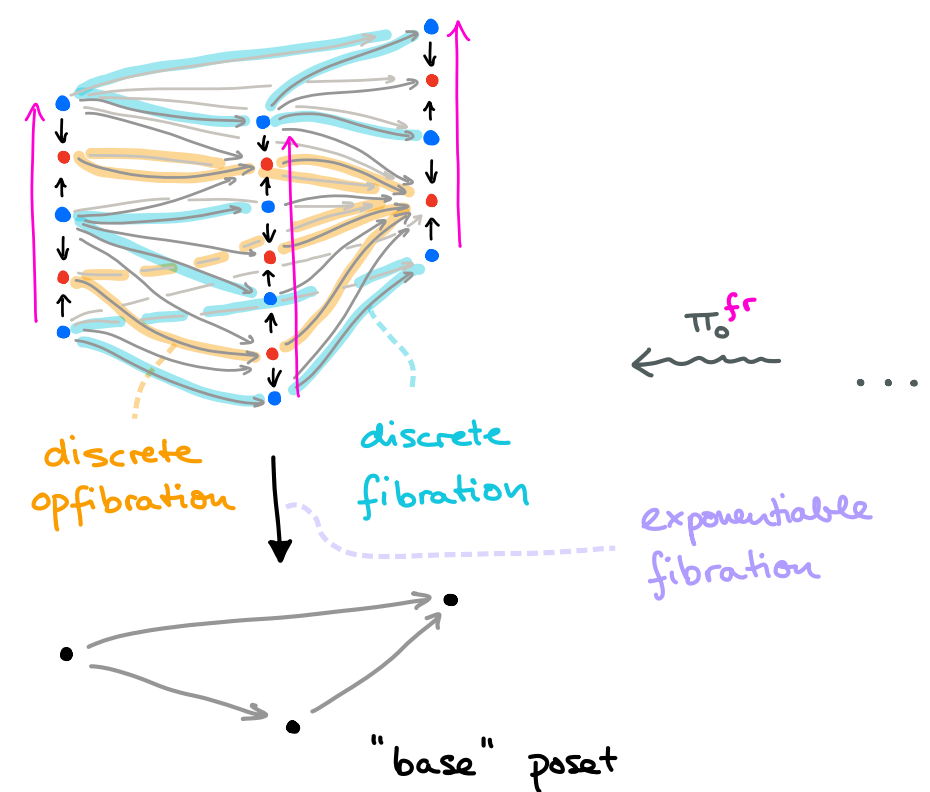 π₀ᶠʳ
. . .
discrete
opfibration
discrete
fibration
exponentiable
fibration
"base" poset